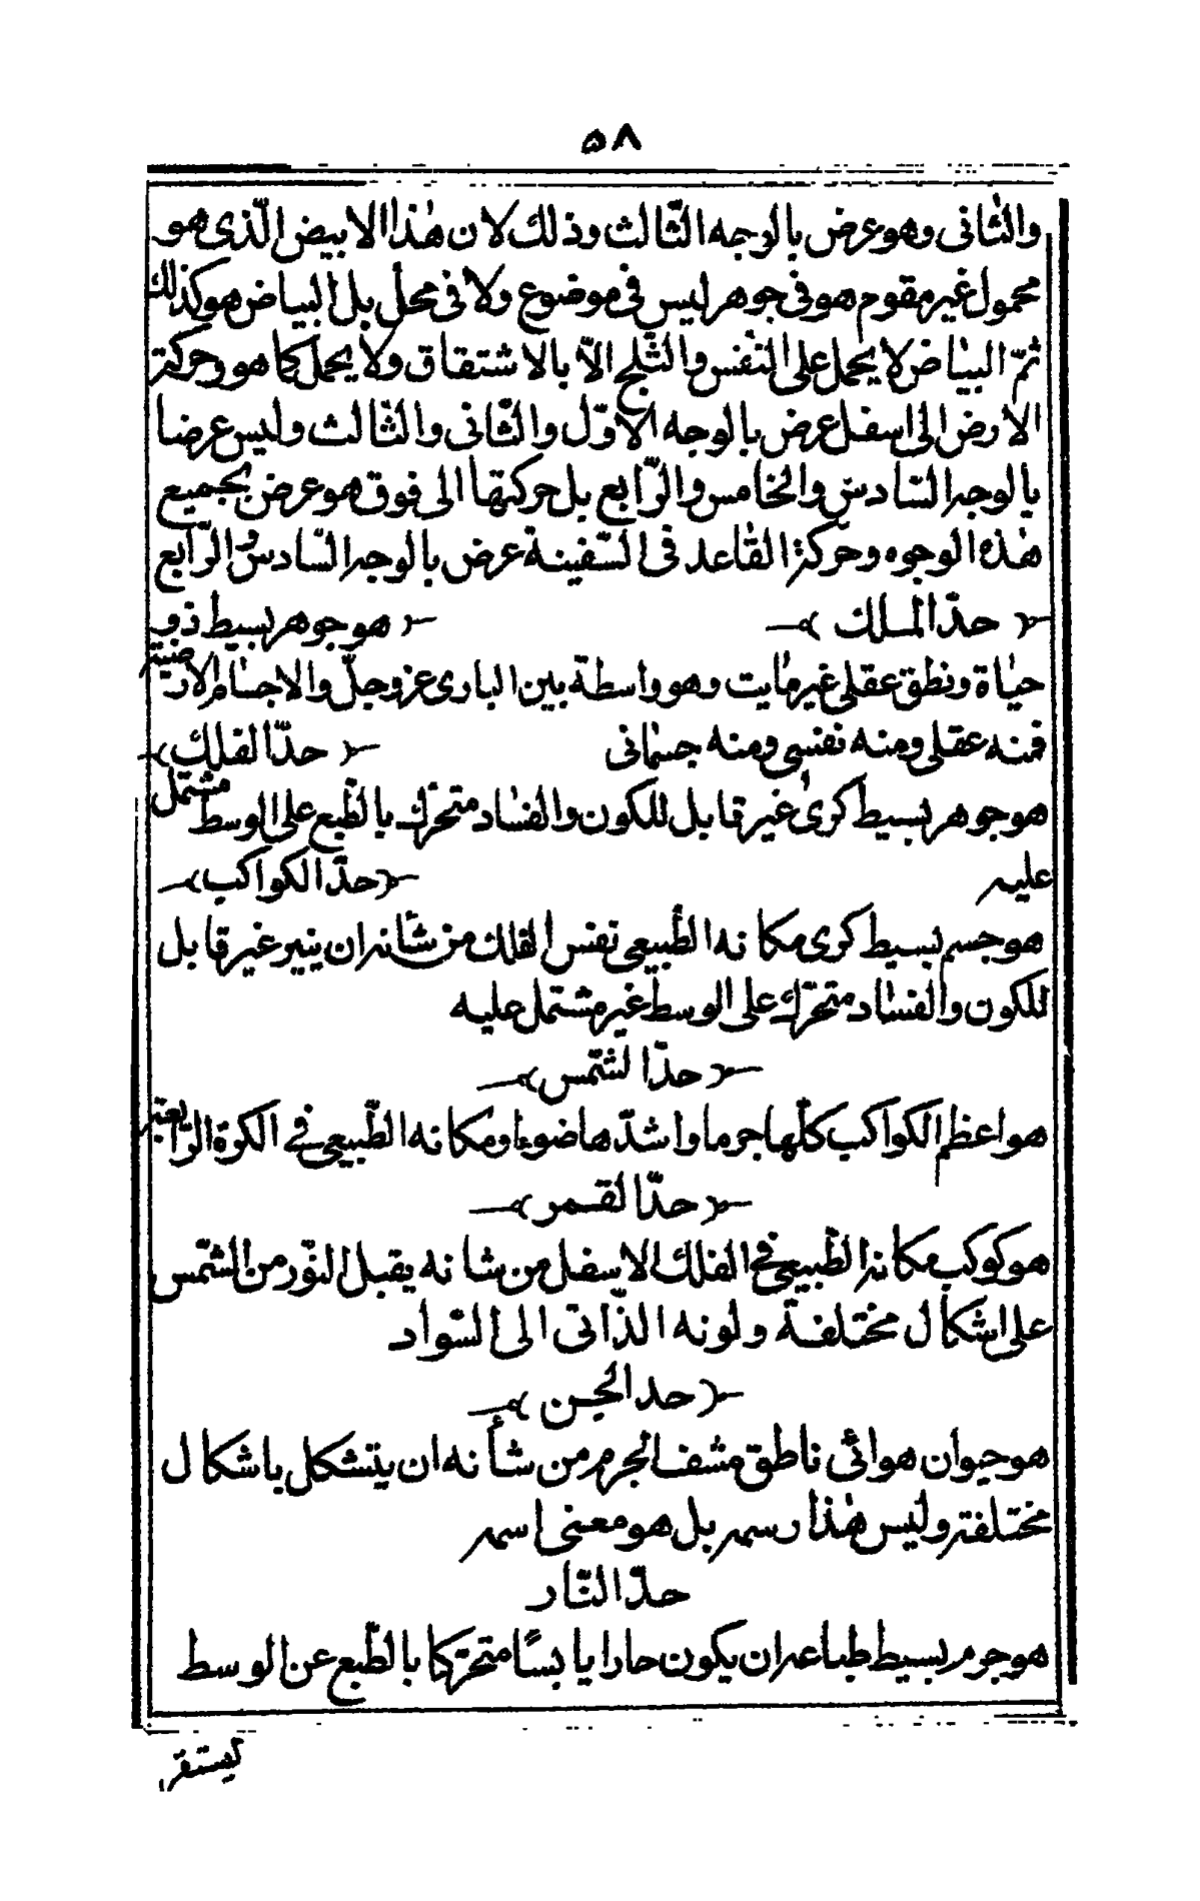 ٥٨
والثانى وهو عرض بالوجه الثّالث وذلك لان هٰذا الابيض الّذى هو
محمول غير مقوم هو فى جوهر ليس فى موضوع ولا فى محل بل البياض هو كذلك
ثمّ البياض لا يحمل على النفس والثّلج الاّ بالاشتقاق ولا يحمل كما هو وحركة
الارض الى اسفل عرض بالوجه الاوّل والثّانى والثّالث وليس عرضا
بالوجه السّادس والخامس والرّابع بل حركتها الى فوق هو عرض بجميع
هٰذه الوجوه وحركة القاعد فى السّفينة عرض بالوجه السّادس والرّابع
﴿ حدّ الملك ﴾ هو جوهر بسيط ذو
حياة ونطق عقلى غير مايت وهو واسطة بين البارى عز وجلّ والاجسام الارضية
فمنه عقلى ومنه نفسى ومنه جسمانى ﴿ حدّ الفلك ﴾
هو جوهر بسيط كرىّ غير قابل للكون والفساد متحرّك بالطّبع على الوسط مشتمل
عليه ﴿ حدّ الكواكب ﴾
هو جسم بسيط كرى مكانه الطّبيعى نفس الفلك من شأنه ان ينير غير قابل
للكون والفساد متحرّك على الوسط غير مشتمل عليه
﴿ حدّ الشّمس ﴾
هو اعظم الكواكب كلّها جرما واشدّها ضوءا ومكانه الطّبيعى فى الكرة الرّابعة
﴿ حدّ القمر ﴾
هو كوكب مكانه الطّبيعى فى الفلك الاسفل من شانه يقبل النّور من الشّمس
على اشكال مختلفة ولونه الذّاتى الى السّواد
﴿ حد الجن ﴾
هو حيوان هوائى ناطق مشف الجرم من شأنه ان يتشكل باشكال
مختلفة وليس هٰذا رسمه بل هو معنى اسمه
حدّ النّار
هو جرم بسيط طباعه ان يكون حارا يابسًا متحرّكا بالطّبع عن الوسط
ليستقر